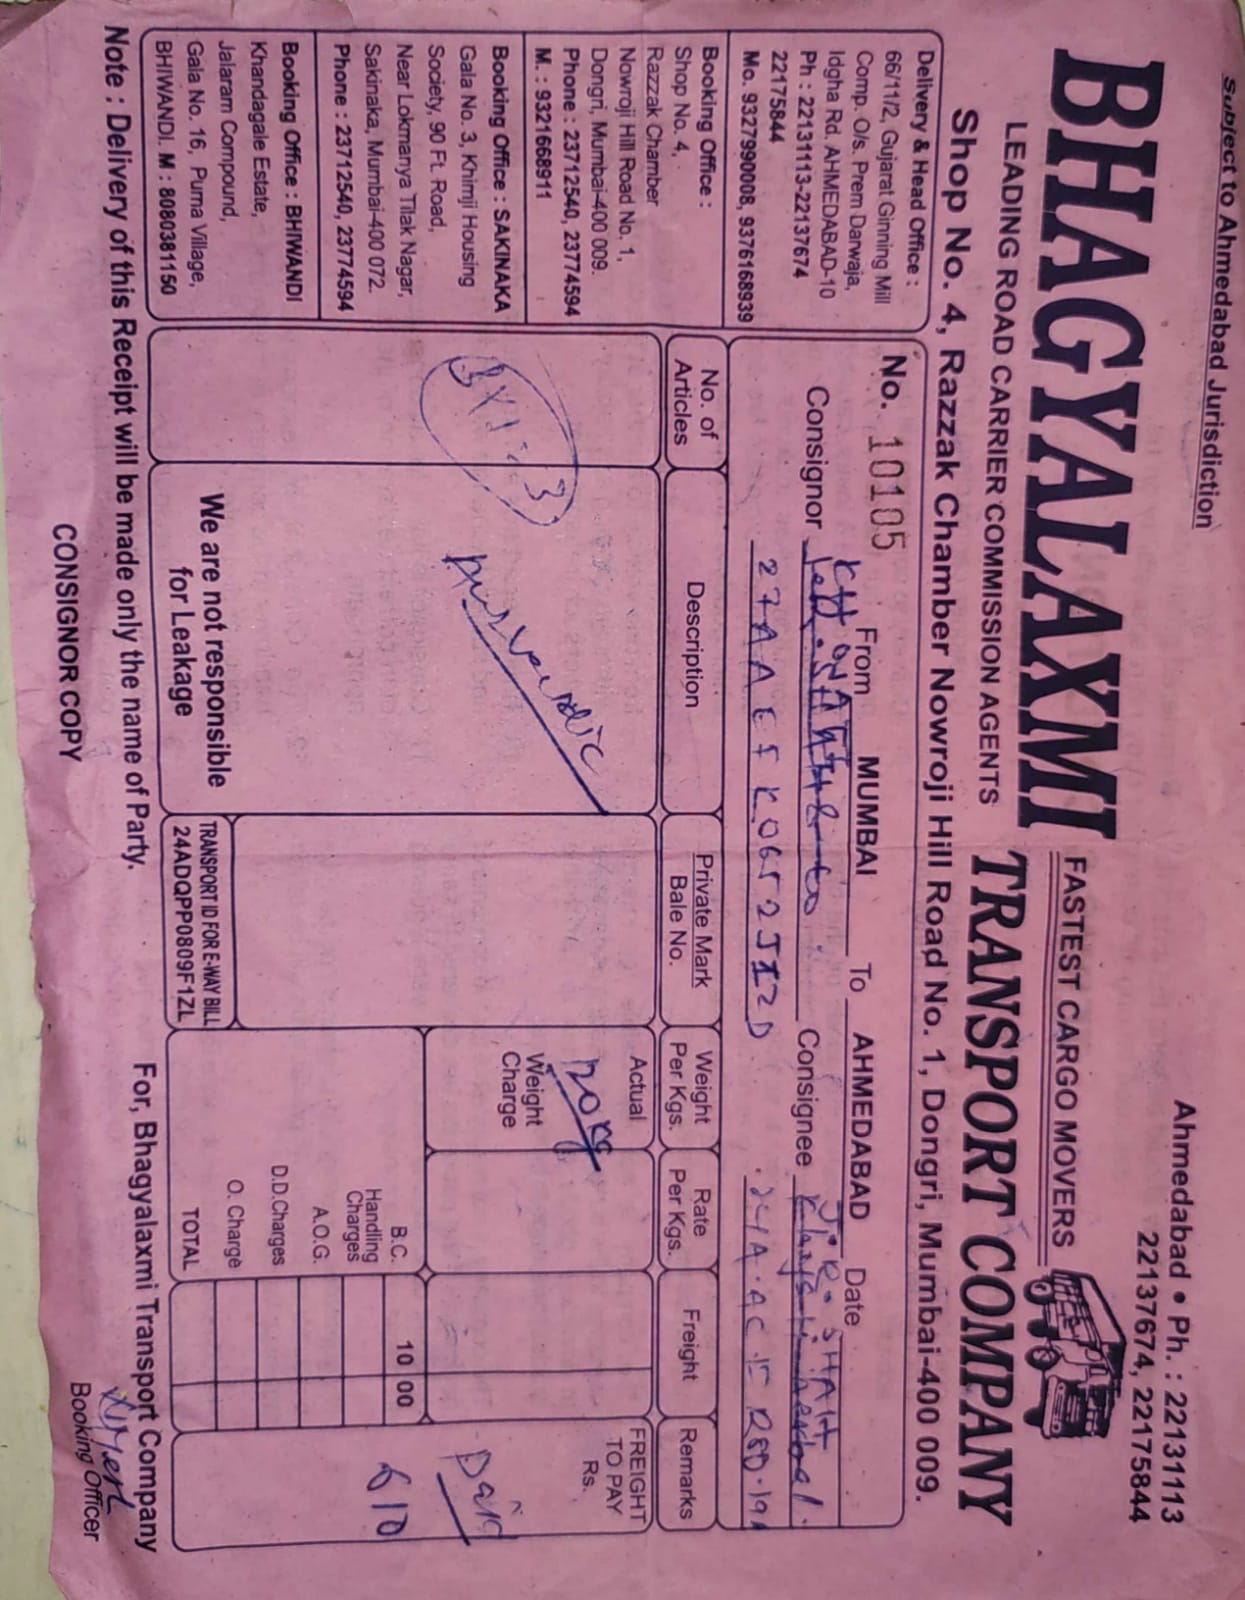 Subject to Ahmedabad Jurisdiction
Ahmedabad • Ph. : 22131113
22137674, 22175844
BHAGYALAXMI
FASTEST CARGO MOVERS
LEADING ROAD CARRIER COMMISSION AGENTS
TRANSPORT COMPANY
Shop No. 4, Razzak Chamber Nowroji Hill Road No. 1, Dongri, Mumbai-400 009.
Delivery & Head Office :
66/11/2, Gujarat Ginning Mill
Comp. O/s. Prem Darwaja,
Idgha Rd. AHMEDABAD-10
Ph : 22131113-22137674
22175844
Mo. 9327990008, 9376168939
Booking Office :
Shop No. 4,
Razzak Chamber
Nowroji Hill Road No. 1,
Dongri, Mumbai-400 009.
Phone : 23712540, 23774594
M. : 9321668911
Booking Office : SAKINAKA
Gala No. 3, Khimji Housing
Society, 90 Ft. Road,
Near Lokmanya Tilak Nagar,
Sakinaka, Mumbai-400 072.
Phone : 23712540, 23774594
Booking Office : BHIWANDI
Khandagale Estate,
Jalaram Compound,
Gala No. 16, Purna Village,
BHIWANDI. M : 8080381150
No. 10105 From MUMBAI To AHMEDABAD Date
J. R. SHAH
Consignor Consignee
No. of Articles
Description
Private Mark
Bale No.
Weight Per Kgs.
Rate Per Kgs.
Freight
Remarks
Actual
Weight Charge
FREIGHT TO PAY Rs.
Paid
610
B.C. 10 00
Handling Charges
A.O.G.
D.D.Charges
O. Charge
TOTAL
We are not responsible
for Leakage
TRANSPORT ID FOR E-WAY BILL
24ADQPP0809F1ZL
Note : Delivery of this Receipt will be made only the name of Party.
For, Bhagyalaxmi Transport Company
CONSIGNOR COPY
Booking Officer